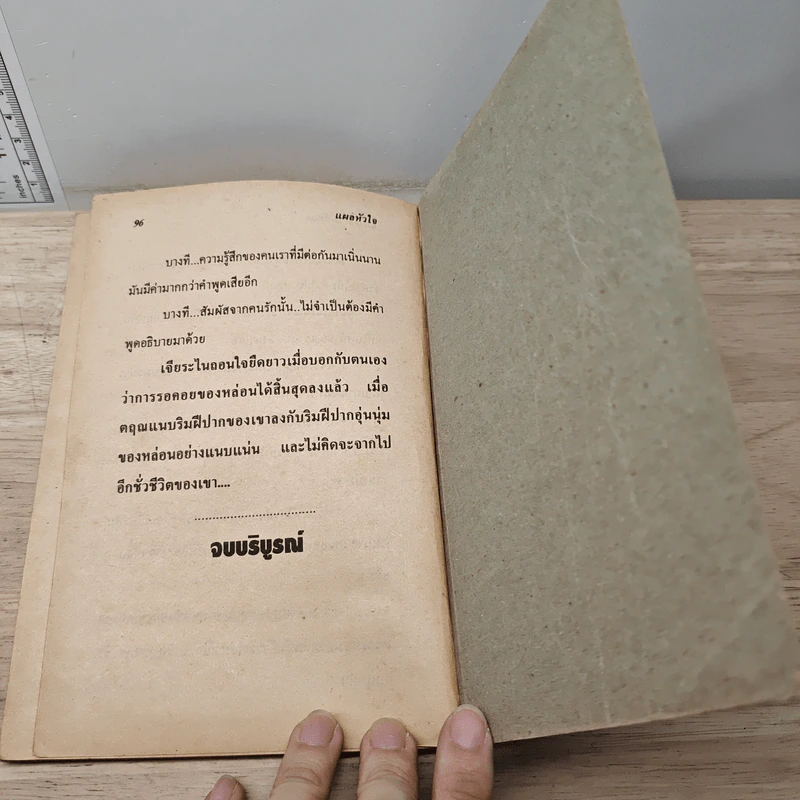 96 แผลหัวใจ
บางที...ความรู้สึกของคนเราที่มีต่อกันมาเนิ่นนาน
มันมีค่ามากกว่าคำพูดเสียอีก
บางที...สัมผัสจากคนรักนั้น..ไม่จำเป็นต้องมีคำ
พูดอธิบายมาด้วย
เจียระไนถอนใจยืดยาวเมื่อบอกกับตนเอง
ว่าการรอคอยของหล่อนได้สิ้นสุดลงแล้ว เมื่อ
ตฤณแนบริมฝีปากของเขาลงกับริมฝีปากอุ่นนุ่ม
ของหล่อนอย่างแนบแน่น และไม่คิดจะจากไป
อีกชั่วชีวิตของเขา....
จบบริบูรณ์
inches
1
2
3
4
5